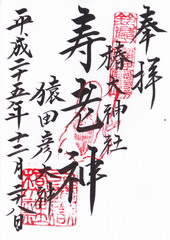 奉拝
椿大神社
寿老神
猿田彦大神
平成二十五年十二月二八日